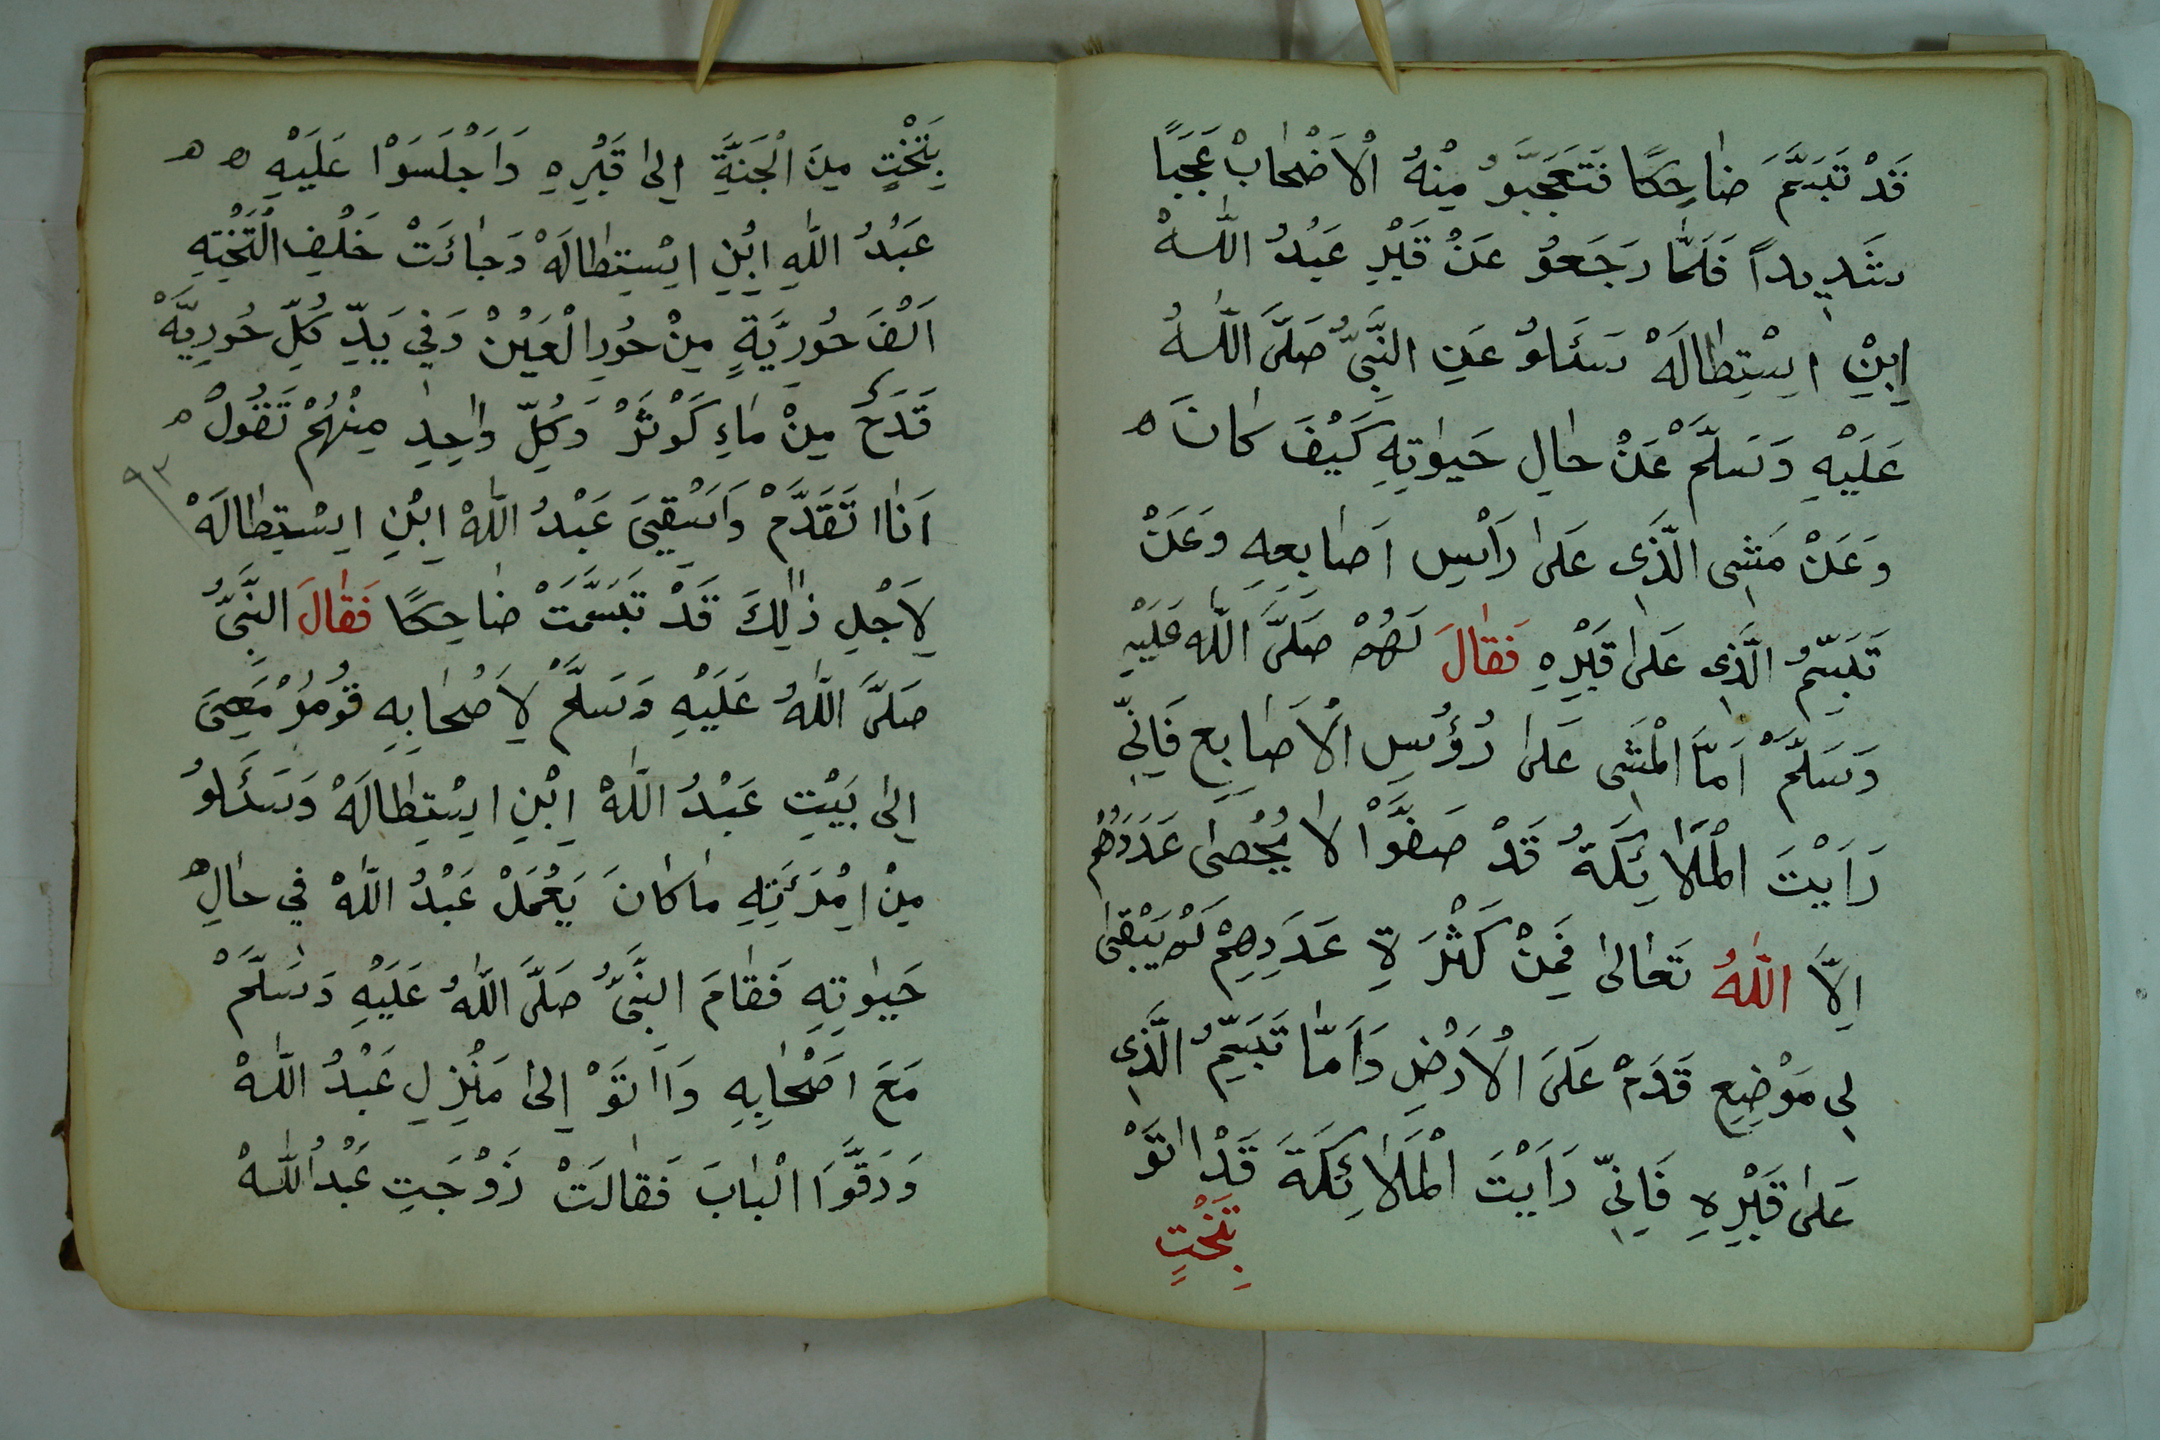 قَدْ تَبَسَّمَ ضٰاحِكًا فَتَعَجَّبَوُ مِنْهُ الْاَصْحٰابْ عَجَبًا
شَدِيداً فَلَمّٰا رَجَعوُ عَنْ قَبْرِ عَبْدُ اللّٰهْ
اِبْنِ اِسْتِطٰالَهْ سَئَلوُ عَنِ النَّبِيُّ صَلَّى اللّٰهُ
عَلَيْهِ وَسَلَّمْ عَنْ حٰالِ حَيٰوتِهِ كَيْفَ كٰانَ ه
وَعَنْ مَشٖى الَّذٖى عَلىٰ رَاْسِ اَصٰابِعِهِ وَعَنْ
تَبَسِّمُ الَّذٖى عَلىٰ قَبْرِهِ فَقٰالَ لَهُمْ صَلَّى اللّٰه عَلَيْهِ
وَسَلَّمْ اَمَّا الْمَشٖى عَلىٰ رُؤُسِ الْاَصٰابِعِ فَاِنّٖى
رَاَيْتَ الْمَلٰائِكَةُ قَدْ صَفَّوْا لٰا يُحْصىٰ عَدَدَهُمْ
اِلَّا اللّٰهُ تَعٰالىٰ فَمِنْ كَثْرَةِ عَدَدِهِمْ لَمْ يَبْقىٰ
لٖى مَوْضِعِ قَدَمْ عَلَى الْاَرْضِ وَاَمّٰا تَبَسِّمُ الَّذٖى
عَلىٰ قَبْرِهِ فَاِنّٖى رَاَيْتَ الْمَلٰائِكَةَ قَدْ اٰتَوْ
بِتَخْتٍ
بِتَخْتٍ مِنَ الْجَنَّةِ اِلىٰ قَبْرِهِ وَاَجْلَسَوْا عَلَيْهِ ه ه
عَبْدُ اللّٰهِ اِبْنِ اِسْتِطٰالَهْ وَجٰائَتْ خَلْفِ التَّخْتِهِ
اَلْفَ حُورِيَّةٍ مِنْ حُورِ الْعَيْنْ وَفٖي يَدِّ كُلِّ حُورِيَّهْ
قَدَحٌ مِنْ مٰاءِ كَوْثَرْ وَكُلِّ وٰاحِدِ مِنْهُمْ تَقُولُ ه
٩٣
اَنٰا اَتَقَدَّمْ وَاَسْقِيَ عَبْدُ اللّٰهْ اِبْنِ اِسْتِطٰالَهْ
لِاَجْلِ ذٰالِكَ قَدْ تَبَسَّمَتْ ضٰاحِكًا فَقٰالَ النَّبِيُّ
صَلَّى اللّٰهُ عَلَيْهِ وَسَلَّمْ لِاَصْحٰابِهِ قوُموُ مَعِيَ
اِلىٰ بَيْتِ عَبْدُ اللّٰهْ اِبْنِ اِسْتِطٰالَهْ وَسَئَلوُ
مِنْ اِمْرَئَتِهِ مٰاكٰانَ يَعْمَلْ عَبْدُ اللّٰهْ فٖي حٰالِ ه
حَيٰوتِهِ فَقٰامَ النَّبِيُّ صَلَّى اللّٰهُ عَلَيْهِ وَسَلَّمْ
مَعَ اَصْحٰابِهِ وَاَتَوْ اِلىٰ مَنْزِلِ عَبْدُ اللّٰهْ
وَدَقَّوَا الْبٰابَ فَقٰالَتْ زَوْجَتِ عَبْدُ اللّٰهْ